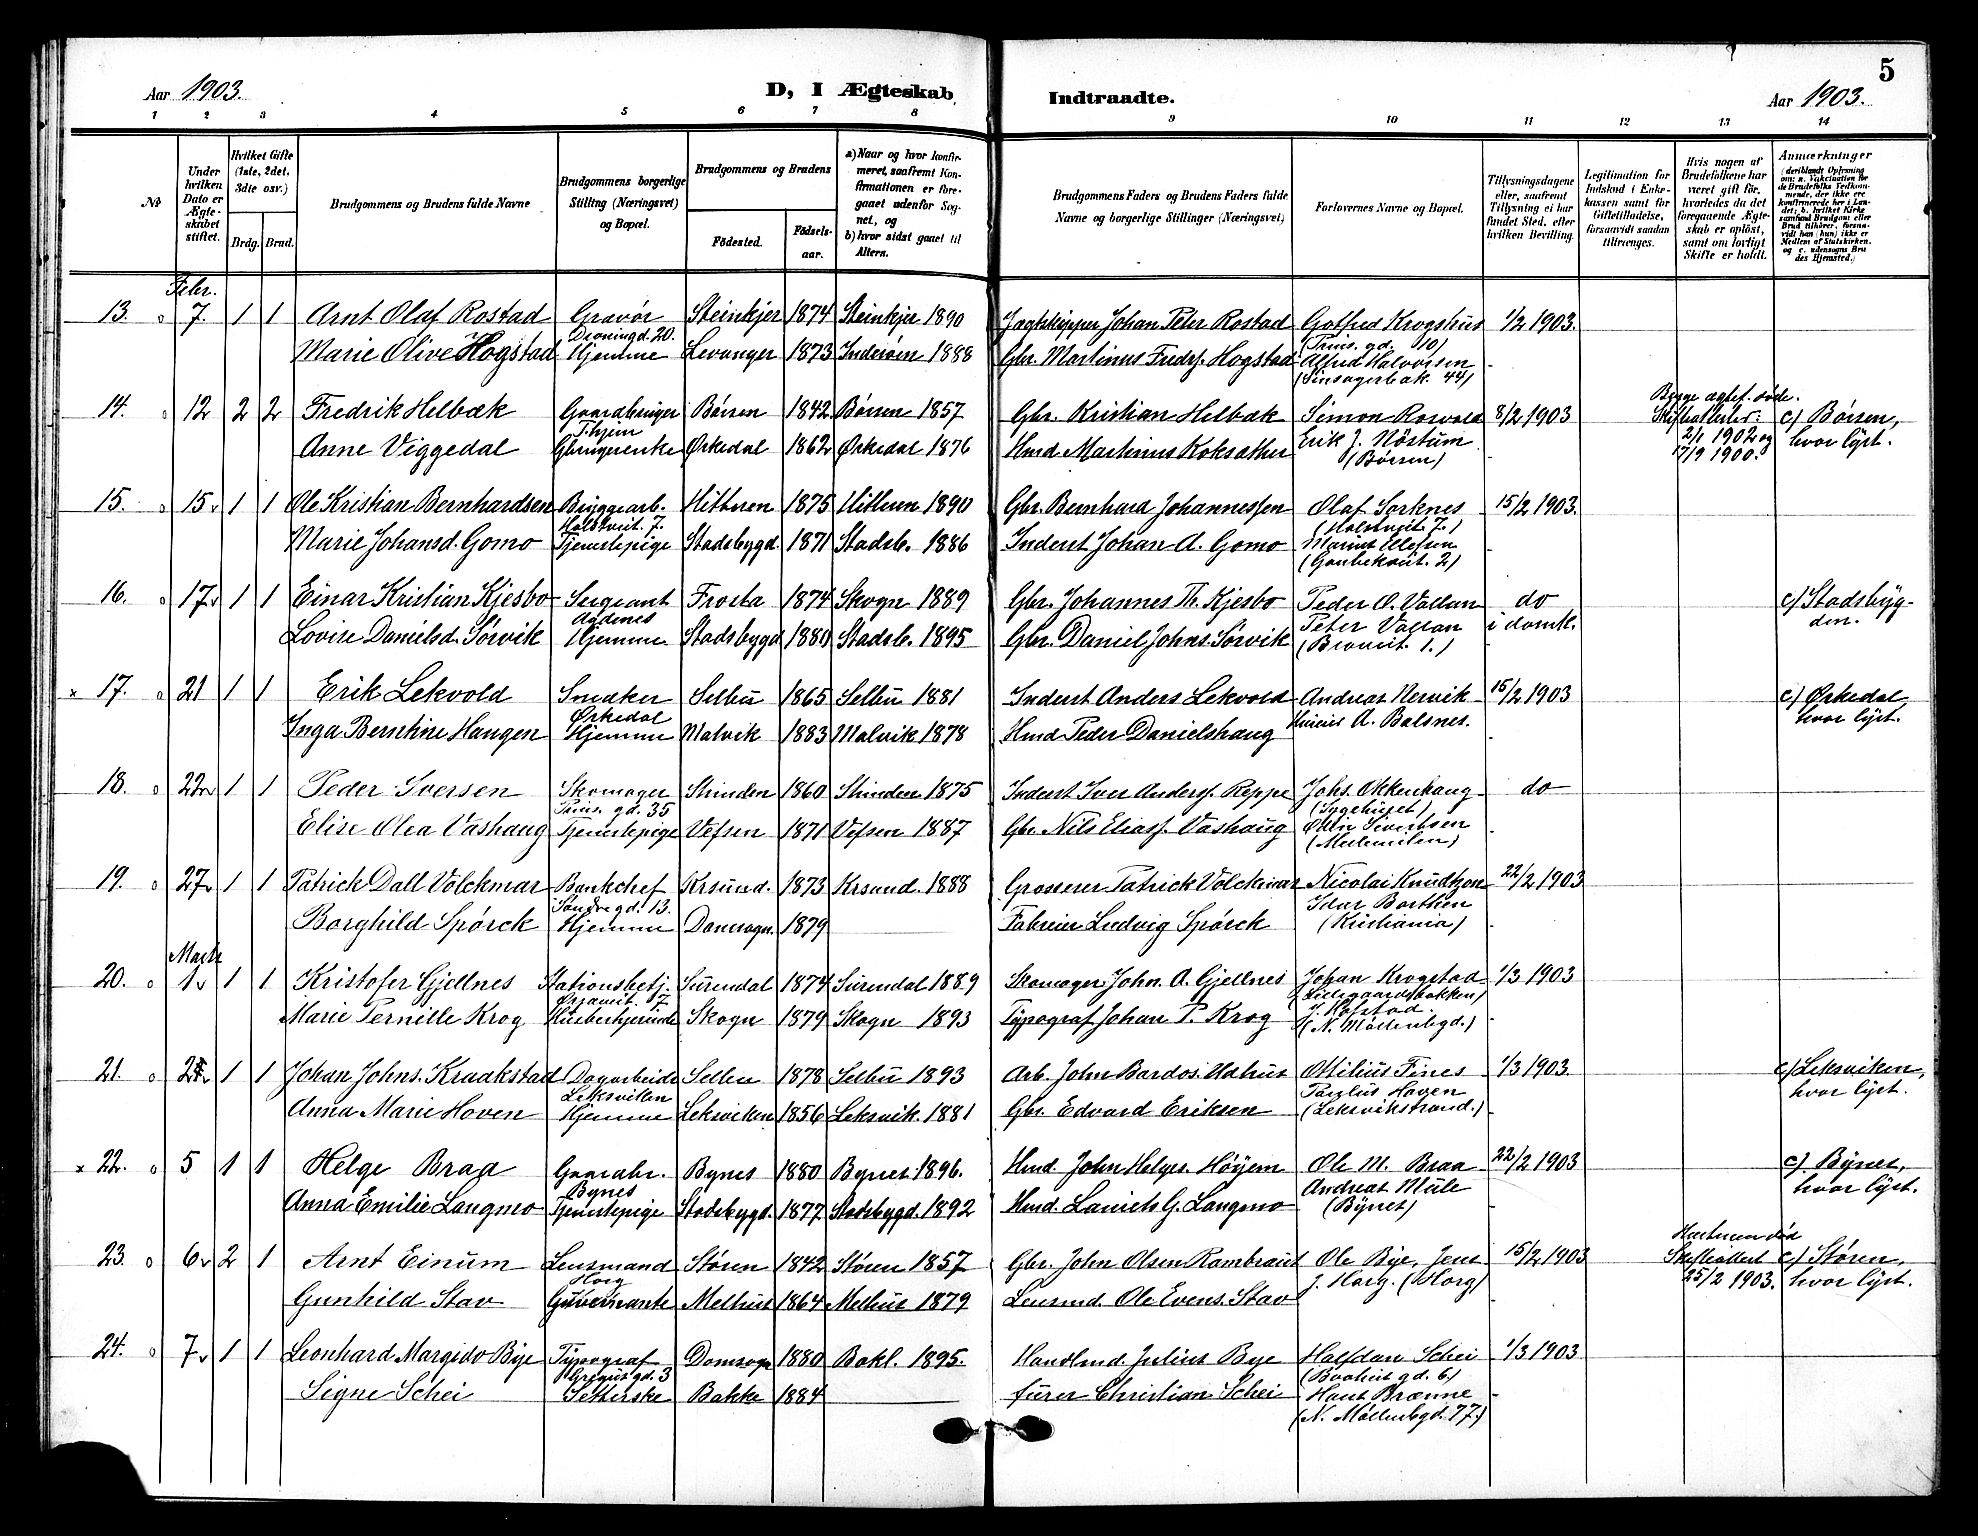 5
Aar 1903. D, I Ægteskab Indtraadte. Aar 1903.
1 2 3 4 5 6 7 8 9 10 11 12 13 14
No
Under hvilken Dato er Ægteskabet stiftet.
Hvilket Gifte (1ste, 2det, 3die osv.)
Brdg. Brud.
Brudgommens og Brudens fulde Navne
Brudgommens borgerlige Stilling (Næringsvei) og Bopæl.
Brudgommens og Brudens
Födested. Födsels-aar.
a) Naar og hvor konfirmeret, saafremt Konfirmationen er foregaaet udenfor Sognet, og
b) hvor sidst gaaet til Alters.
Brudgommens Faders og Brudens Faders fulde Navne og borgerlige Stillinger (Næringsvei)
Forlovernes Navne og Bopæl.
Tillysningsdagene eller, saafremt Tillysning ei har fundet Sted, efter hvilken Bevilling.
Legitimation for Indskud i Enkekassen samt for Giftetilladelse, forsaavidt saadan tiltrænges.
Hvis nogen af Brudefolkene har været gift før, hvorledes da det foregaaende Ægteskab er oplöst, samt om lovligt Skifte er holdt.
Anmærkninger
Febr.
13. 7. 1 1 Arnt Olaf Rostad Gravør Steinkjer 1874 Steinkjer 1890 Jagtskipper Johan Peter Rostad Gotfred Krogshus 1/2 1903.
Dronningd. 20. (Prins. gd. 10)
Marie Olive Hogstad Hjemme Levanger 1873 Inderøen 1888 Gbr. Martinus Fredrs. Hogstad Alfred Halvorsen
(Sinsagerbak. 44)
14. 12 2 2 Fredrik Helbæk Gaardbruger Børsen 1842 Børsen 1857 Gbr. Kristian Helbæk Simon Rosvold 8/2 1903 Begge ægtef. døde. c) Børsen,
T.hjem Skifteattester: hvor lyst.
Anne Viggedal Gbrugerenke Ørkedal 1862 Ørkedal 1876 Hmd. Martinus Koksæther Erik J. Nöstum 2/1 1902 og
(Børsen) 17/9 1900.
15. 15 1 1 Ole Kristian Bernhardsen Bryggearb. Hitteren 1875 Hitteren 1890 Gbr. Bernhard Johannessen Olaf Sorknes 15/2 1903.
Holstveit. 7. (Holstveit. 7.)
Marie Johansd. Gomo Tjenestepige Stadsbygd. 1871 Stadsb. 1886 Inderst Johan A. Gomo Marius Olefsen
(Gaubekveit. 2)
16. 17 1 1 Einar Kristian Kjesbo Sergeant Frosta 1874 Skogn 1889 Gbr. Johannes Th. Kjesbo Peder O. Vollan do c) Stadsbyg-
Agdenes den.
Lovise Danielsd. Sørvik Hjemme Stadsbygd 1880 Stadsb. 1895 Gbr. Daniel Johns. Sørvik Peter Vollan i domk.
(Braveit. 1.)
x 17. 21 1 1 Erik Lekvold Snedker Selbu 1865 Selbu 1881 Inderst Anders Lekvold Andreas Nervik 15/2 1903 c) Ørkedal
Ørkedal hvor lyst.
Inga Berntine Haugen Hjemme Malvik 1883 Malvik 1878 Hmd Peder Danielshaug A. Balsnes.
18. 22 1 1 Peder Iversen Skomager Strinden 1860 Strinden 1875 Inderst Iver Anders. Reppe Johs. Okkenhaug do
Prins. gd. 35 (Sygehuset)
Elise Olea Vashaug Tjenestepige Vefsen 1871 Vefsen 1887 Gbr. Nils Eliass. Vashaug Odin Sivertsen
19. 27 1 1 Patrick Dall Volckmar Bankchef Krsund. 1873 Krsund. 1888 Grosserer Patrick Volckmar Nicolai Knudtzon 22/2 1903
Søndre gd. 13.
Borghild Spørck Hjemme Domsogn. 1879 Fabreier Ludvig Spørck Idar Borthen
(Kristiania)
Marts
20. 1 1 1 Kristofer Gjellnes Stationsbetj. Surendal 1874 Surendal 1889 Skomager John. A. Gjellnes Johan Krogstad 1/3 1903
Ørjaveit. 7 (Lillegaardsbakken)
Marie Pernille Krog Husbestyrerinde Skogn 1879 Skogn 1893 Typograf Johan P. Krog J. Hofstad
(N. Møllenbgd.)
21. 1 1 Johan Johns. Kraakstad Dagarbeider Selbu 1878 Selbu 1893 Arb. John Bardos. Udhus Otilius Fines 1/3 1903. c) Leksviken,
Leksviken hvor lyst.
Anna Marie Hoven Hjemme Leksviken 1856 Leksvik. 1881 Gbr. Edvard Eriksen Paulus Hoven
(Leksvikstrand.)
x 22. 5 1 1 Helge Braa Gaardbr. Bynes 1880 Bynet 1896. Hmd. John Helges. Höyem Ole M. Braa 22/2 1903 c). Bynet,
Bynes hvor lyst.
Anna Emilie Langmo Tjenestepige Stadsbygd. 1877 Stadsbygd. 1892 Hmd. Laniels G. Langmo Andreas Mule
(Bynet)
23. 6 2 1 Arnt Einum Lensmand Støren 1842 Støren 1857 Gbr. John Olsen Rambraut Ole Bye, Jens 15/2 1903 Hustruen død c) Støren,
Horg Skifteattest hvor lyst.
Gunhild Stav Guvernante Melhus 1864 Melhus 1879 Lensmd. Ole Evens. Stav J. Horg. (Horg) 25/2 1903.
24. 7 1 1 Leonhard Margido Bye Typograf Domsogn 1880 Bakl. 1895. Handlmd. Julius Bye Halfdan Schei 1/3 1903
Gregus gd. 3 (Baahus gd. 6.)
Signe Schei Setterske Bakke 1884 furer Christian Schei Hans Brænne
(N. Møllenbgd. 77.)